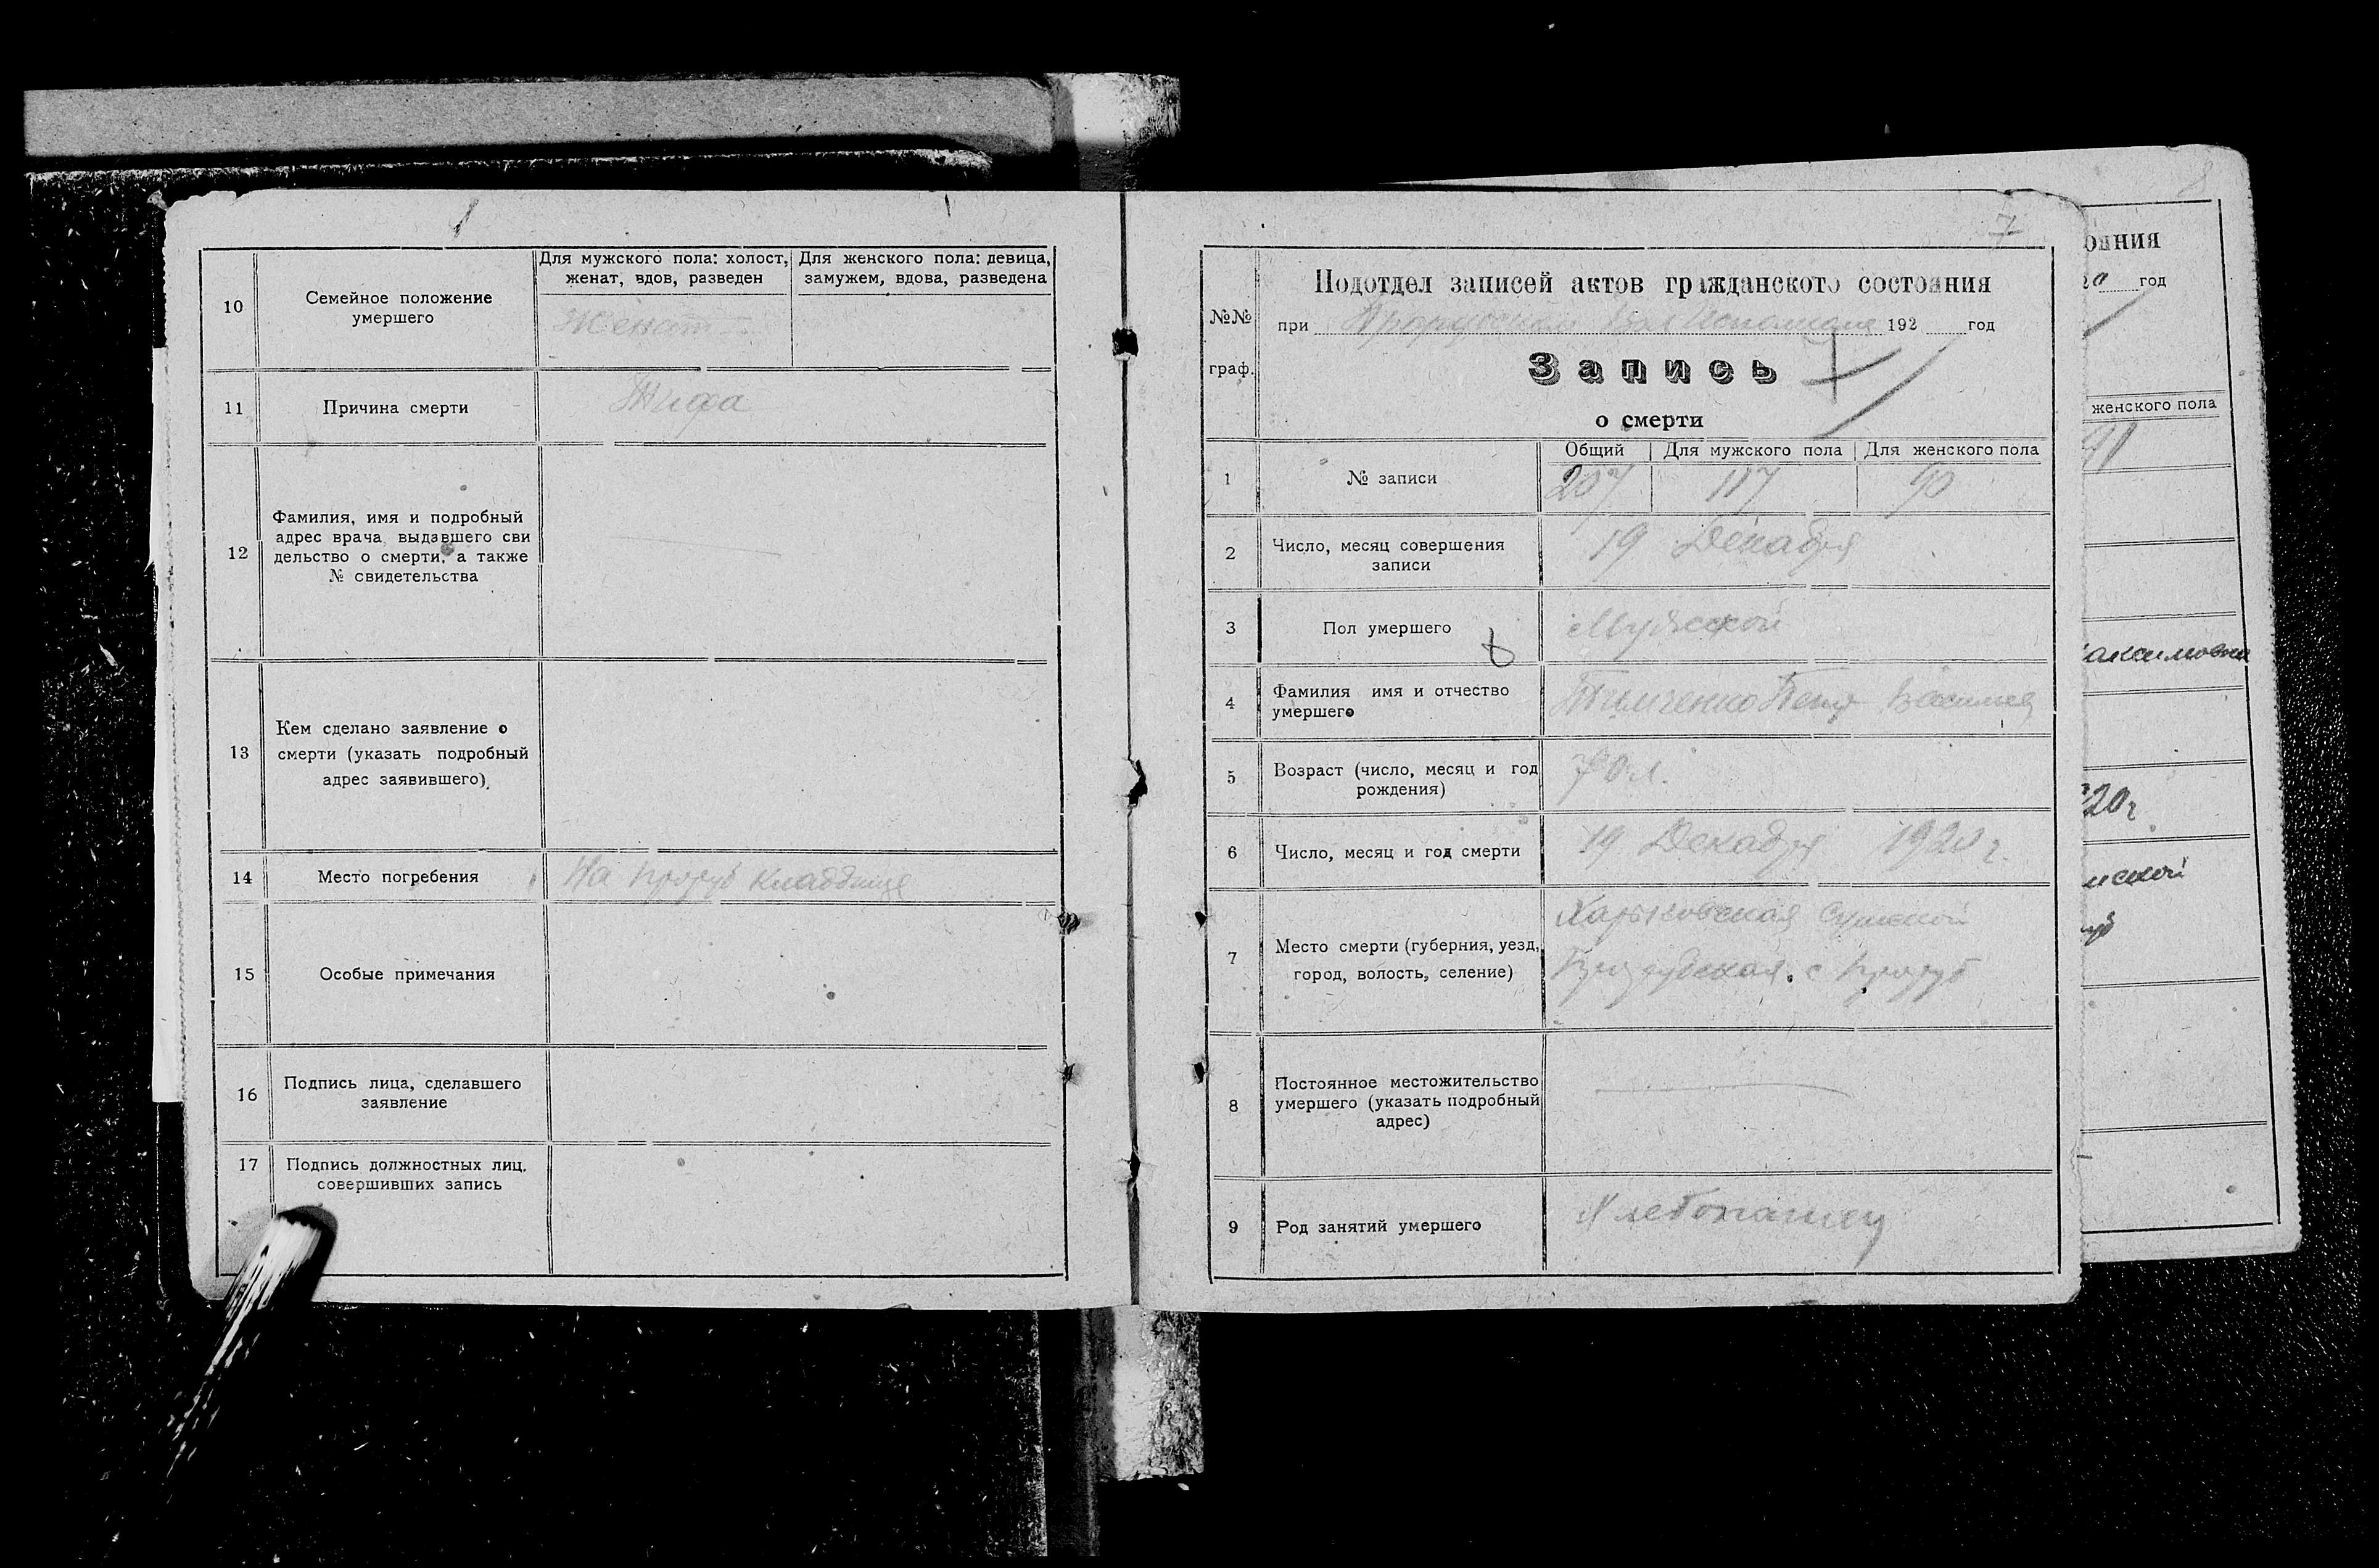 10
Семейное положение
умершего
Для мужского пола: холост,
женат, вдов, разведен
Для женского пола: девица,
замужем, вдова, разведена
Женат
11
Причина смерти
Тифа
12
Фамилия, имя и подробный
адрес врача выдавшего сви
дельство о смерти, а также
№ свидетельства
13
Кем сделано заявление о
смерти (указать подробный
адрес заявившего)
14
Место погребения
На Проруб кладбище
15
Особые примечания
16
Подпись лица, сделавшего
заявление
17
Подпись должностных лиц.
совершивших запись
7
№№
граф.
Подотдел записей актов гражданского состояния
при Прорубском Вол Исполкоме 192 год
Запись
о смерти
Общий
Для мужского пола
Для женского пола
1
№ записи
207
117
90
2
Число, месяц совершения
записи
19 Декабря
3
Пол умершего
Мужской
4
Фамилия имя и отчество
умершего
Тимченко Петр Васильев
5
Возраст (число, месяц и год
рождения)
70 л.
6
Число, месяц и год смерти
19 Декабря 1920 г.
7
Место смерти (губерния, уезд,
город, волость, селение)
Харьковская Сумской
Прорубская. с Проруб
8
Постоянное местожительство
умершего (указать подробный
адрес)
9
Род занятий умершего
Хлебопашец
8
ояния
20 год
женского пола
91
аксимовна
20 г
мской